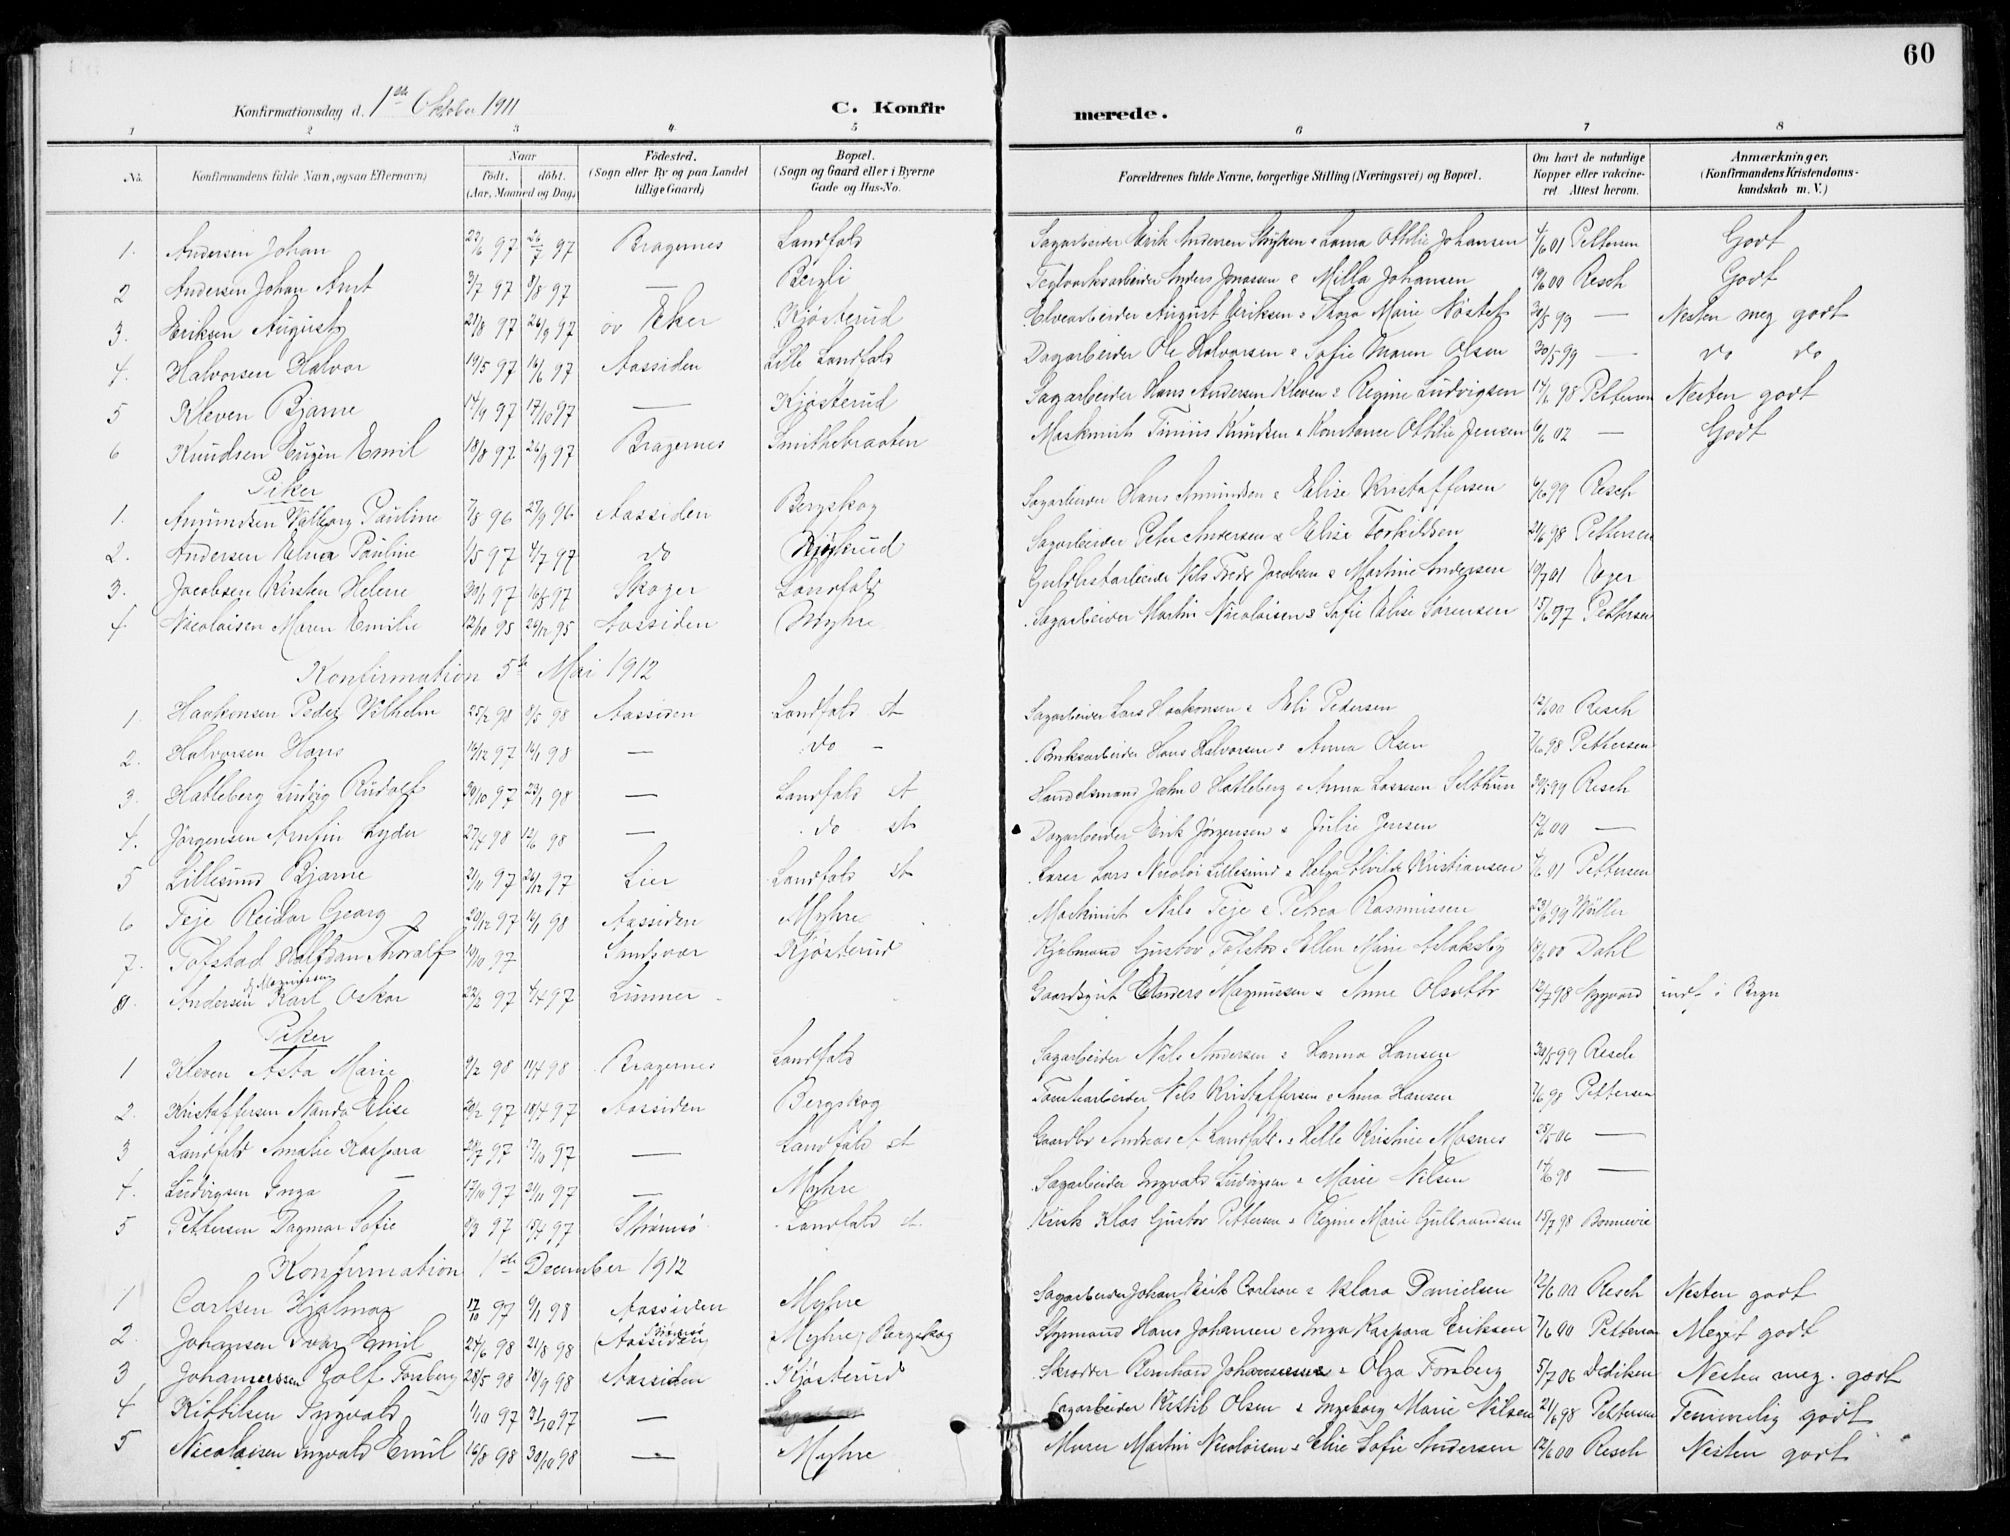 60
Konfirmationsdag d. 1ste Oktober 1911 C. Konfirmerede.
1 2 3 4 5 6 7 8
No. Konfirmandens fulde Navn, ogsaa Efternavn) Naar födt. döbt. (Aar, Maaned og Dag) Födested. (Sogn eller By og paa Landet tillige Gaard) Bopæl. (Sogn og Gaard eller i Byerne Gade og Hus-No. Forældrenes fulde Navne, borgerlige Stilling (Næringsvei) og Bopæl. Om havt de naturlige Kopper eller vakcineret Attest herom. Anmærkninger. (Konfirmandens Kristendomskundskab m. V.)
1. Andersen Johan 22/6 97 26/7 97 Bragernes Landfald Sagarbeider Erik Andersen & Laura Ottilie Johansen 4/6 01 Pettersen Godt
2 Andersen Johan Arnt 3/7 97 8/8 97 — Bergli Teglværksarbeider Anders Jonassen & Milla Johansen 19/6 00 Resch Godt
3. Eriksen August 21/8 97 26/9 97 öv Eker Kjösterud Elvearbeider August Eriksen & Thora Marie Nöstet 30/5 99 — Nesten meg godt
4. Halvorsen Halvor 19/5 97 16/6 97 Aassiden Lille Landfald Dagarbeider Ole Halvorsen & Sofie Maren Olsen 30/5 99 — do do
5 Kleven Bjarne 14/9 97 17/10 97 — Kjösterud Sagarbeider Hans Andersen Kleven & Regine Ludvigsen 14/6 98 Pettersen Nesten godt
6 Knudsen Eugen Emil 18/8 97 26/9 97 Bragernes Smithebraaten Maskinist Tinius Knudsen & Konstance Ottilie Jensen 6/6 02 — Godt
Piker
1. Amundsen Valborg Pauline 7/8 96 27/9 96 Aassiden Bergskog Sagarbeider Hans Amundsen & Elise Kristaffersen 6/6 99 Resch
2. Andersen Elna Pauline 1/5 97 4/7 97 do Kjösterud Sagarbeider Peter Andersen & Elise Torkildsen 21/6 98 Pettersen
3. Jacobsen Kirsten Helene 30/1 97 16/5 97 Skoger Landfald Guldlistarbeider Nils Fredr Jacobsen & Martine Andersen 19/7 01
4 Nicolaisen Maren Emilie 12/10 95 26/12 95 Aassiden Myhre Sagarbeider Martin Nicolaisen & Sofie Elise Sørensen 15/6 97 Pettersen
Konfirmation 5te Mai 1912
1. Haakonsen Peder Vilhelm 25/2 98 8/5 98 Aassiden Landfald st Sagarbeider Lars Haakonsen & Eli Pedersen 12/6 00 Resch
2. Halvorsen Hans 16/12 97 16/1 98 — do — Bruksarbeider Hans Halvorsen & Anna Olsen 7/6 98 Pettersen
3. Hatleberg Ludvig Rudolf 30/10 97 23/1 98 — Landfald st Handelsmand Jahn O Hatleberg & Anna Lassesen Selthun 30/5 99 Resch
4. Jörgensen Arnfin Lyder 27/4 98 12/6 98 — do st Dagarbeider Erik Jörgensen & Julie Jensen 12/6 00 —
5 Lillesund Bjarne 21/11 97 26/12 97 Lier Landfald st Lærer Lars Nicolai Lillesund & Helga Kristiansen 4/6 01 Pettersen
6 Teje Reidar Georg 20/12 97 16/1 98 Aassiden Myhre Maskinist Nils Teje & Petrea Rasmussen 23/6 99 Wüller
7. Tofstad Halfdan Thoralf 10/10 97 Sandsvær Kjösterud Gustav Tofstad & Ellen Marie 18/6 00 Dahl
8 Andersen Karl Oskar 22/2 97 4/4 97 Lunner Gaardsgut Anders Magnussen & Anne Olsdtr 12/7 98 Nygaard
Piker
1 Kleven Asta Marie 9/2 98 11/4 98 Bragernes Landfald Sagarbeider Nils Andersen & Hanna Hansen 30/5 99 Resch
2. Kristaffersen Nanda Elise 20/2 97 18/4 97 Aassiden Bergskog Tomtearbeider Nils Kristaffersen & Anna Hansen 7/6 98 Pettersen
3 Landfald Amalie Kaspara 24/7 97 17/10 97 — Landfald st Gaardbr Andreas A Landfald & Helle Kristine Mosnes 25/5 06 —
4. Ludvigsen Inga — 17/10 97 21/11 97 — Myhre Sagarbeider Ingvald Ludvigsen & Marie Nilsen 14/6 98 —
5 Pettersen Dagmar Sofie 8/3 97 15/4 97 Strømsö Landfald st Kusk Klas Gustav Pettersen & Regine Marie Gulbrandsen 15/7 98 Bonnevie
Konfirmation 1ste December 1912
1 Carlsen Hjalmar 17/10 97 9/1 98 Aassiden Myhre Sagarbeider Johan Erik Carlson & Klara Danielsen 12/6 00 Resch Nesten godt
2. Johansen Ivar Emil 24/6 98 21/8 98 Aassiden Strømsö Myhre, Bergskog Styrmand Hans Johansen & Inga Kaspara Eriksen 7/6 00 Pettersen Meget godt
3 Johannessen Rolf Forsberg 28/5 98 18/9 98 Aassiden Kjösterud Skrædder Bernhard Johannessen & Olga Forsberg 5/7 06 Dediken Nesten meg. godt
4 Kittilsen Ingvald 1/10 97 31/10 97 — Sagarbeider Kittil Olsen & Ingeborg Marie Nilsen 21/6 98 Pettersen Temmelig godt
5 Nicolaisen Ingvald Emil 16/8 98 30/10 98 — Myhre Murer Martin Nicolaisen & Elise Sofie Andersen 12/6 00 Resch Nesten godt